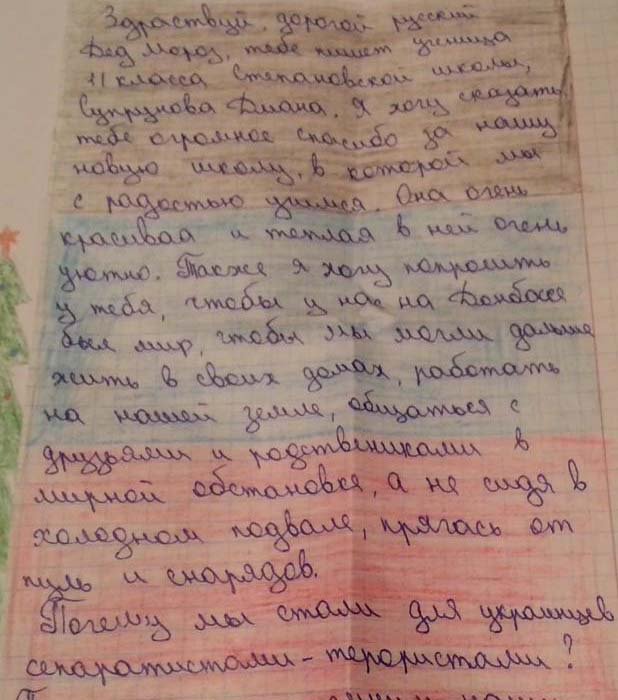 Здраствуй, дорогой русский
Дед Мороз, тебе пишет ученица
11 класса Степановской школы,
Супрунова Диана. Я хочу сказать
тебе огромное спасибо за нашу
новую школу, в которой мы
с радостью учимся. Она очень
красивая и теплая в ней очень
уютно. Также я хочу попросить
у тебя, чтобы у нас на Донбасе
был мир, чтобы мы могли дальше
жить в своих домах, работать
на нашей земле, общаться с
друзьями и родствениками в
мирной обстановке, а не сидя в
холодном подвале, прягась от
пуль и снарядов.
Почему мы стали для украинцев
сепаратистами-терористами?